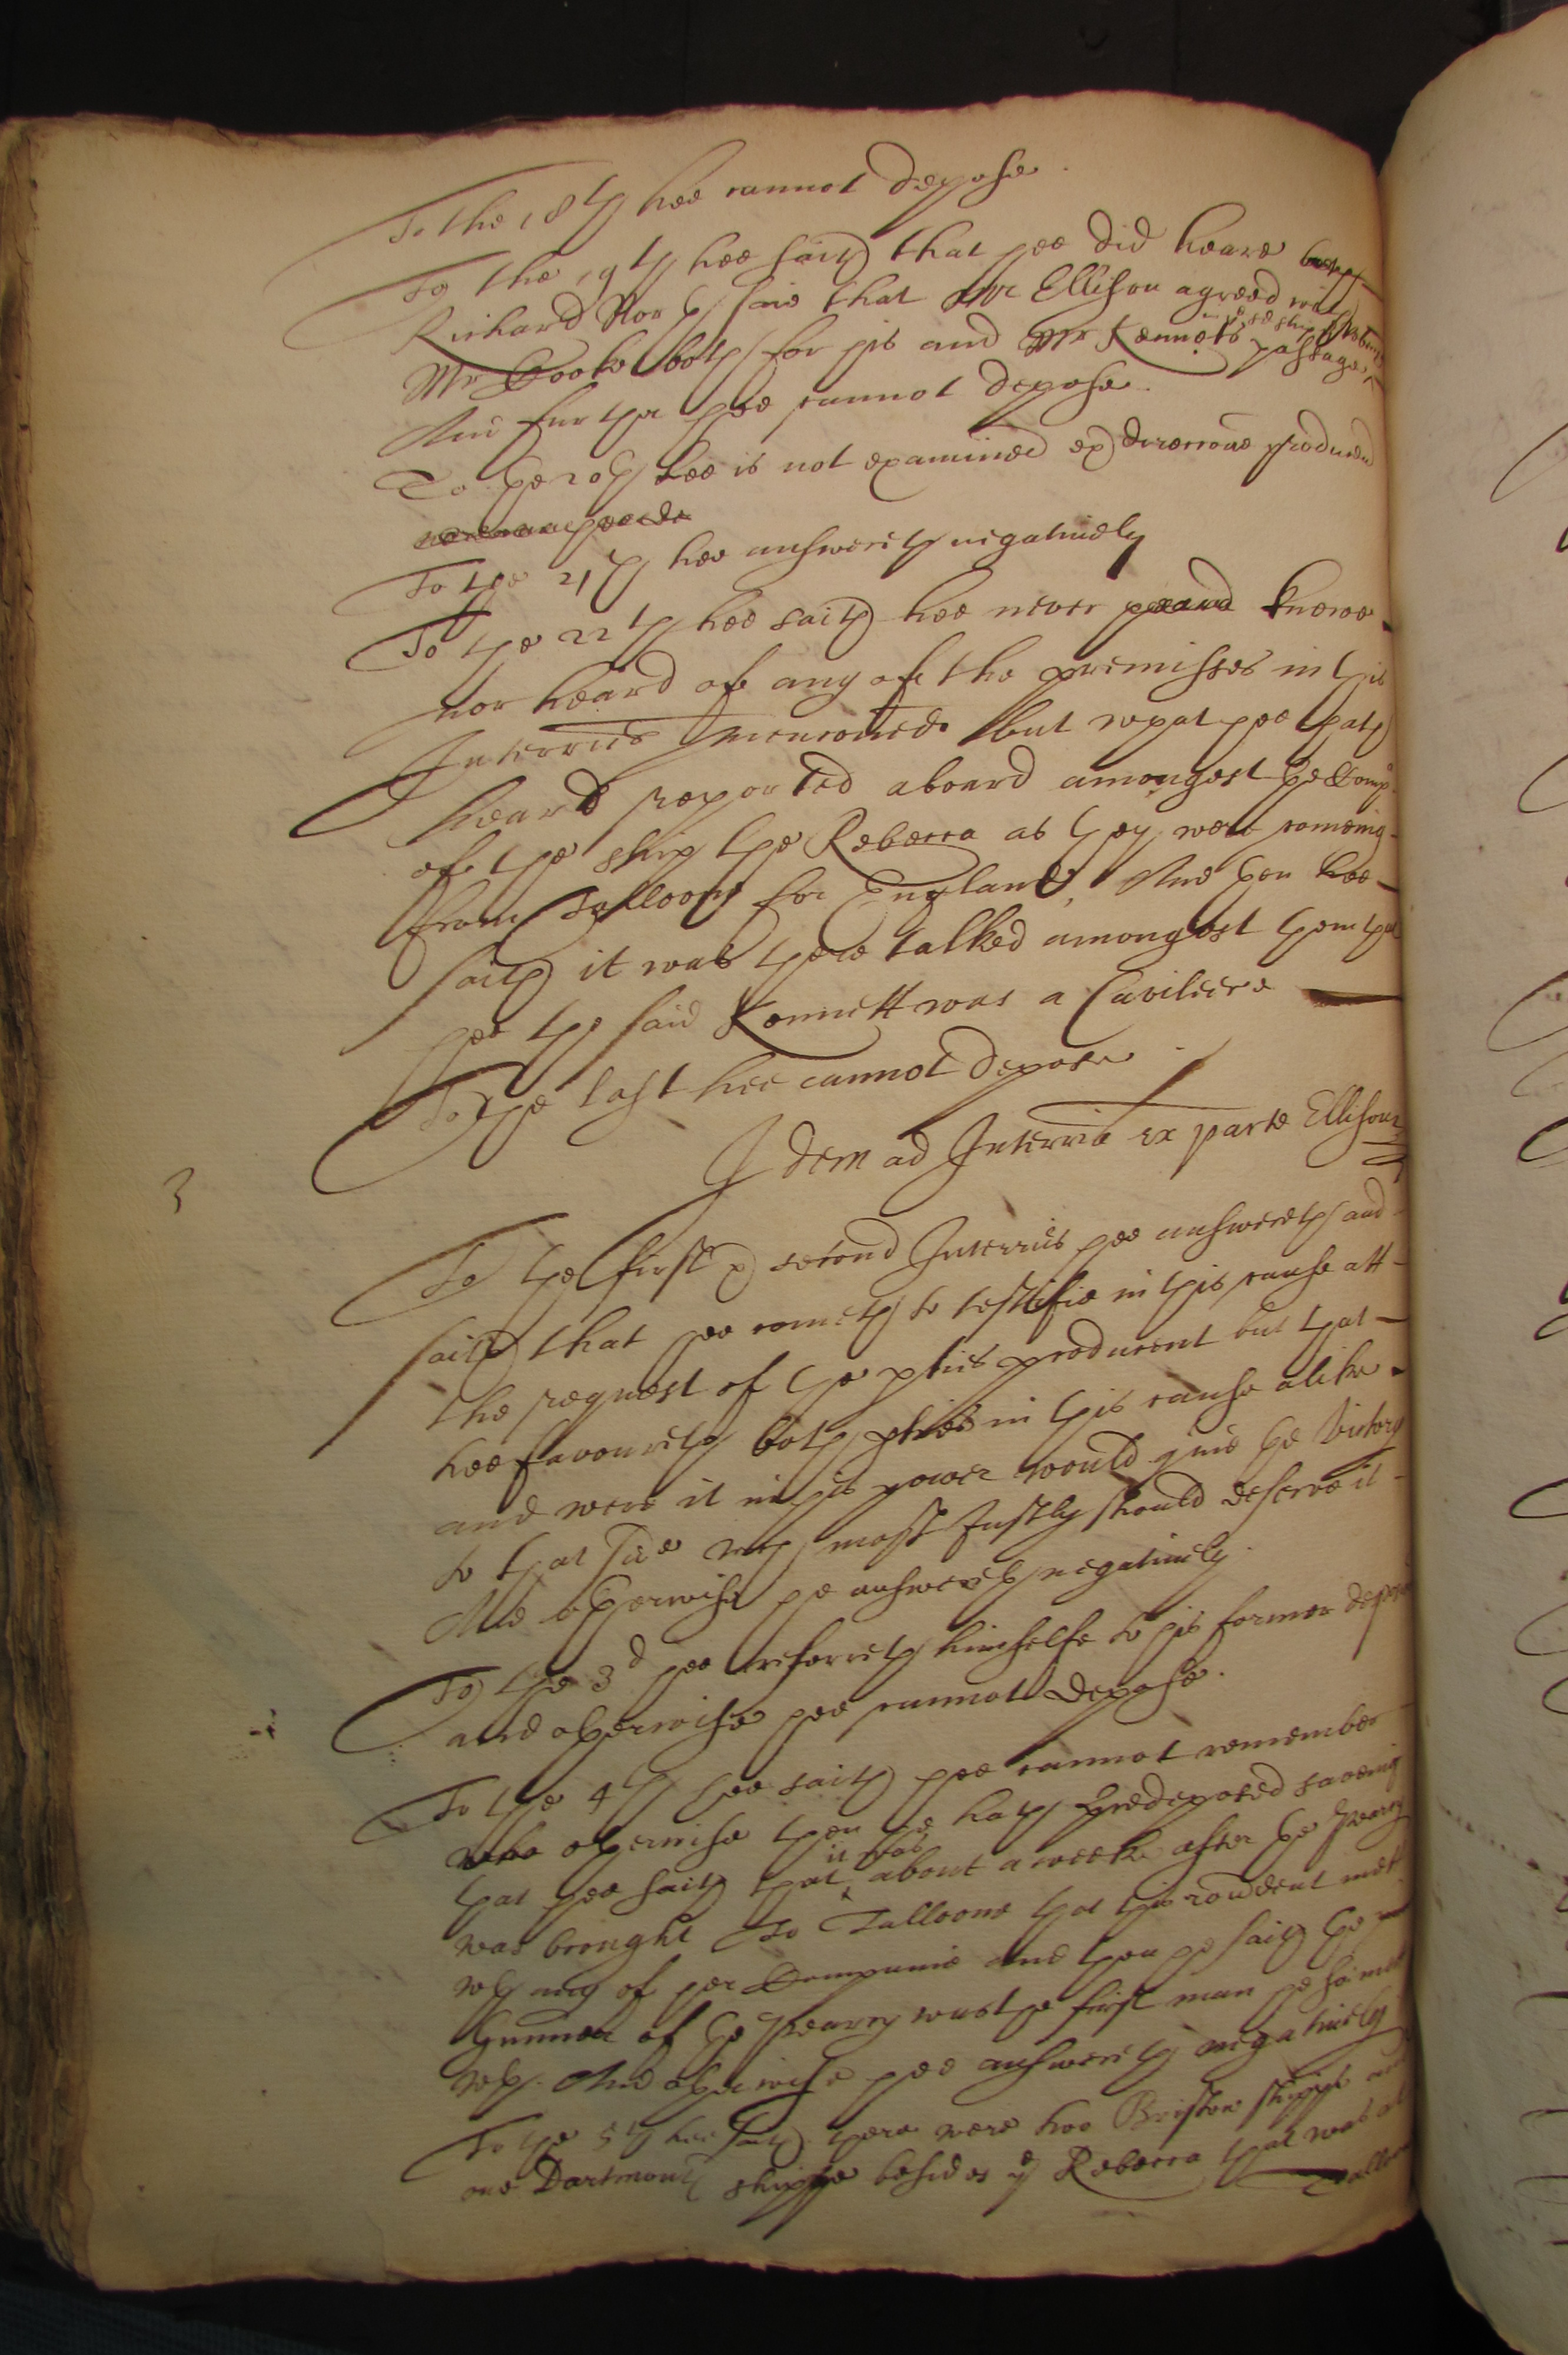 To the 18th hee cannot depose.
To the 19th hee saith that hee did heare
Richard Nor saie that Mr Ellison agreed with
Mr Cooke both for his and Mr Kennets passage
in ye sd ship Rebecca
And further hee cannot depose.
To the 20th hee is not examined ex direccone producen
To the 21th hee answereth negatively
To the 22th hee saith hee never heard knewe
nor heard of any of the premisses in this
Interrie menconed but what hee hath
heard reported aboard amongest the Comp
of the ship the Rebecca as they were comeing
from Tolloone for England, And then hee
saith it was there talked amongest them that
hee the said Kennett was a Caviliere
To the last hee cannot depose.
Idem ad Interria ex parte Ellison
3
To the first & second Interries hee answereth and
saith that hee cometh to testifie in this cause att
the request of the pties producent but that
hee favoureth both pties in this cause alike
and were it in his power would give the victory
to that side wch most Justly should deserve it
And otherwise he answereth negatively.
To the 3d hee referreth himselfe to his former depo
and otherwise hee cannot depose.
To the 4th hee saith hee cannot remember
otherwise then he hath predeposed saveing
that hee saith that it was about a weeke after the Pearey
was brought to Talloone that this rondent mett
wth any of her Companie and then he saith the
Gunner of the Pearey was the first man he soe mett
wth. And otherwise hee answereth negatively
To the 5th hee saith there were two Bristow shipps and
one Dartmouth shippe besides ye Rebecca that was at
Tallo